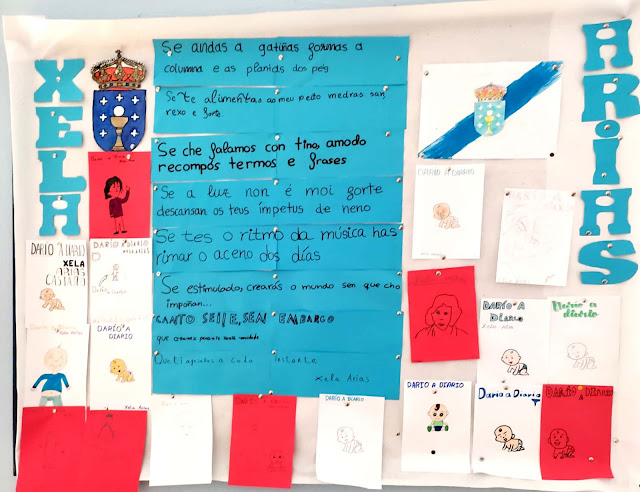 XELA
ARIAS
Se andas a gatiñas formas a
columna e as plantas dos pés
Se te alimentas ao meu peito medras san,
rexo e forte.
Se che falamos con tino, amodo
recompós termos e frases
Se a luz non é moi forte
descansan os teus ímpetus de neno
Se tes o ritmo da música has
rimar o aceno dos días
Se estimulado, crearás o mundo sen que cho
impoñan...
CANTO SEI! E, SEN EMBARGO
que
a cada instante
Xela Arias
DARIO A DIARIO
DARIO A DIARIO
XELA
ARIAS
CASTAÑO
DARIO A DIARIO
Xela Arias
DARÍO A
DIARIO
Xela Arias
DARIO A DIARIO
DARIO A DIARIO
DARÍO A
DIARIO
Xela Arias
Darío a
diario
DARIO A DIARIO
Darío a Diario
DARIO A DIARIO